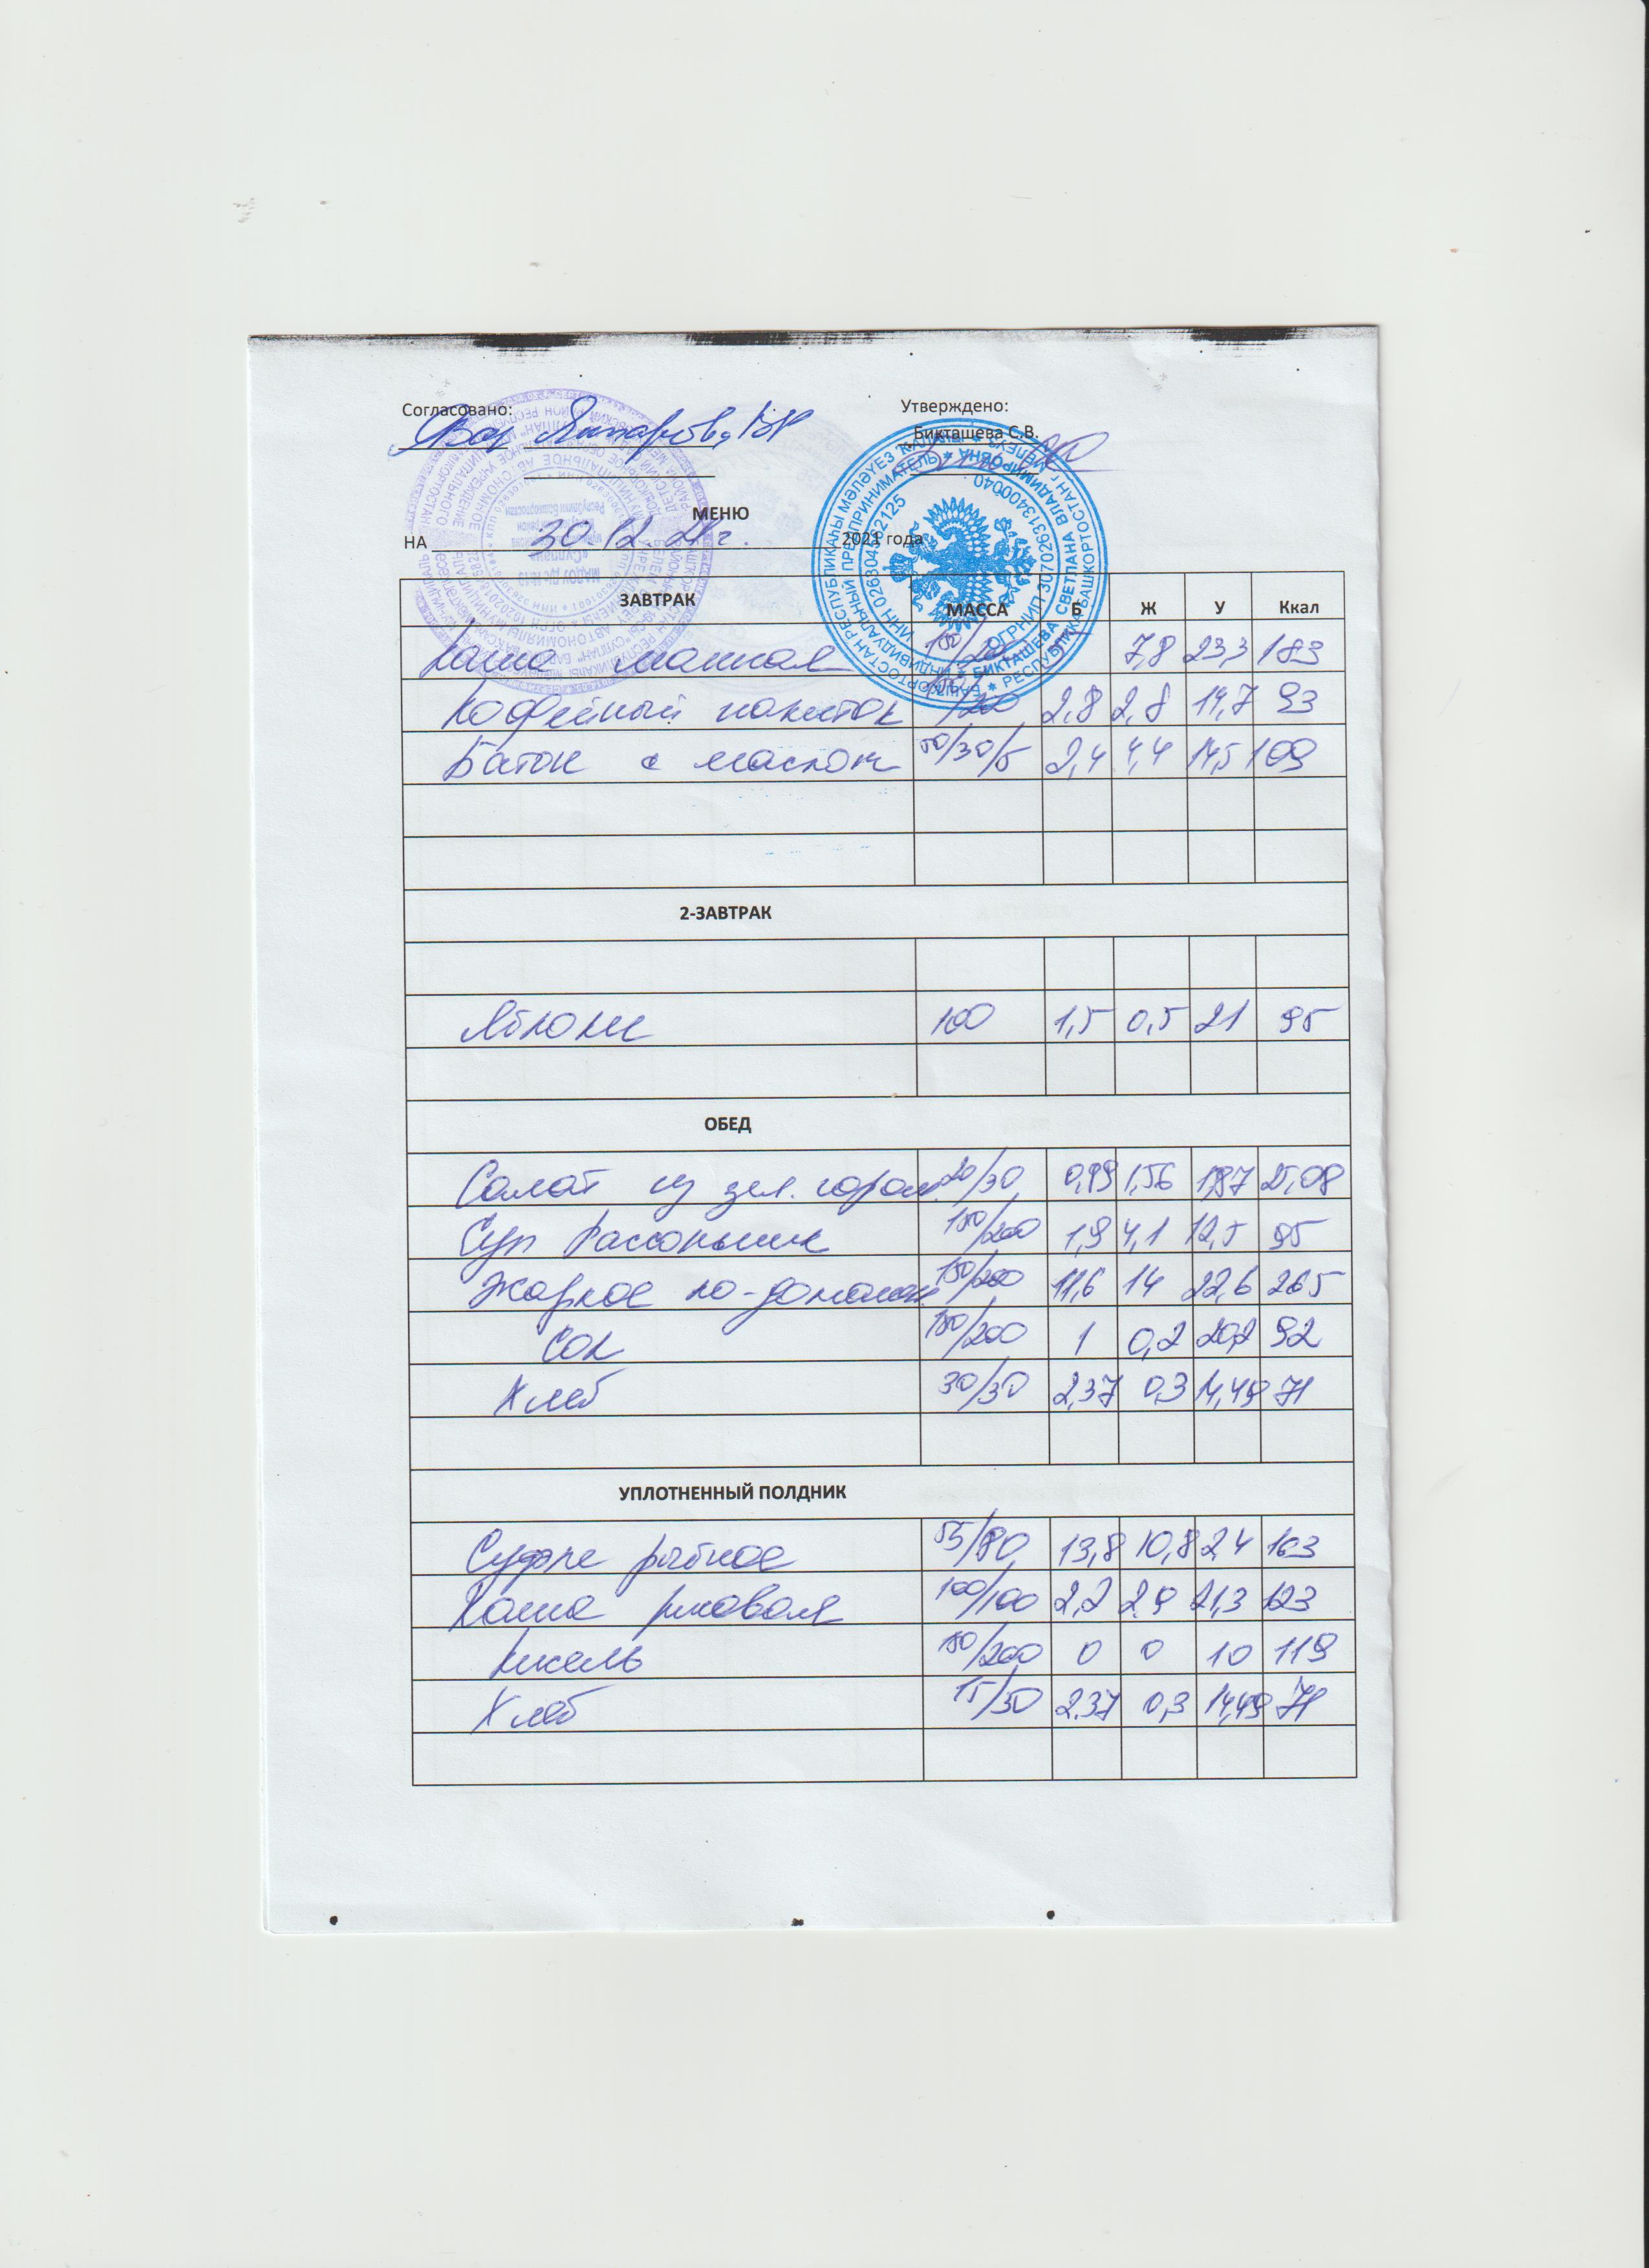 Согласовано:
Утверждено:
Бикташева С.В.
МЕНЮ
НА 30.12.21г. 2021 года
ЗАВТРАК МАССА Б Ж У Ккал
Каша манная 7,8 23,3 183
Кофейный напиток 2,8 2,8 14,7 93
Батон с маслом /30/5 2,4 4,4 14,5 109
2-ЗАВТРАК
Яблоки 100 1,5 0,5 21 95
ОБЕД
Салат из зел. горош. 20/30 0,99 1,56 1,87 25,08
Суп Рассольник 150/200 1,9 4,1 12,5 95
Жаркое по-домашн 150/200 11,6 14 22,6 265
Сок 180/200 1 0,2 20,2 92
Хлеб 30/30 2,37 0,3 14,49 71
УПЛОТНЕННЫЙ ПОЛДНИК
Суфле рыбное 55/80 13,8 10,8 2,4 163
Каша рисовая 100/100 2,2 2,9 21,3 123
Кисель 180/200 0 0 10 119
Хлеб 15/30 2.37 0,3 14,49 71
БАШКОРТОСТАН РЕСПУБЛИКАҺЫ МӘЛӘҮЕЗ ҠАЛАҺЫ
РЕСПУБЛИКА БАШКОРТОСТАН г. МЕЛЕУЗ
ИНДИВИДУАЛЬНЫЙ ПРЕДПРИНИМАТЕЛЬ
БИКТАШЕВА СВЕТЛАНА ВЛАДИМИРОВНА
ИНН 026304962125
ОГРНИП 307026313400040